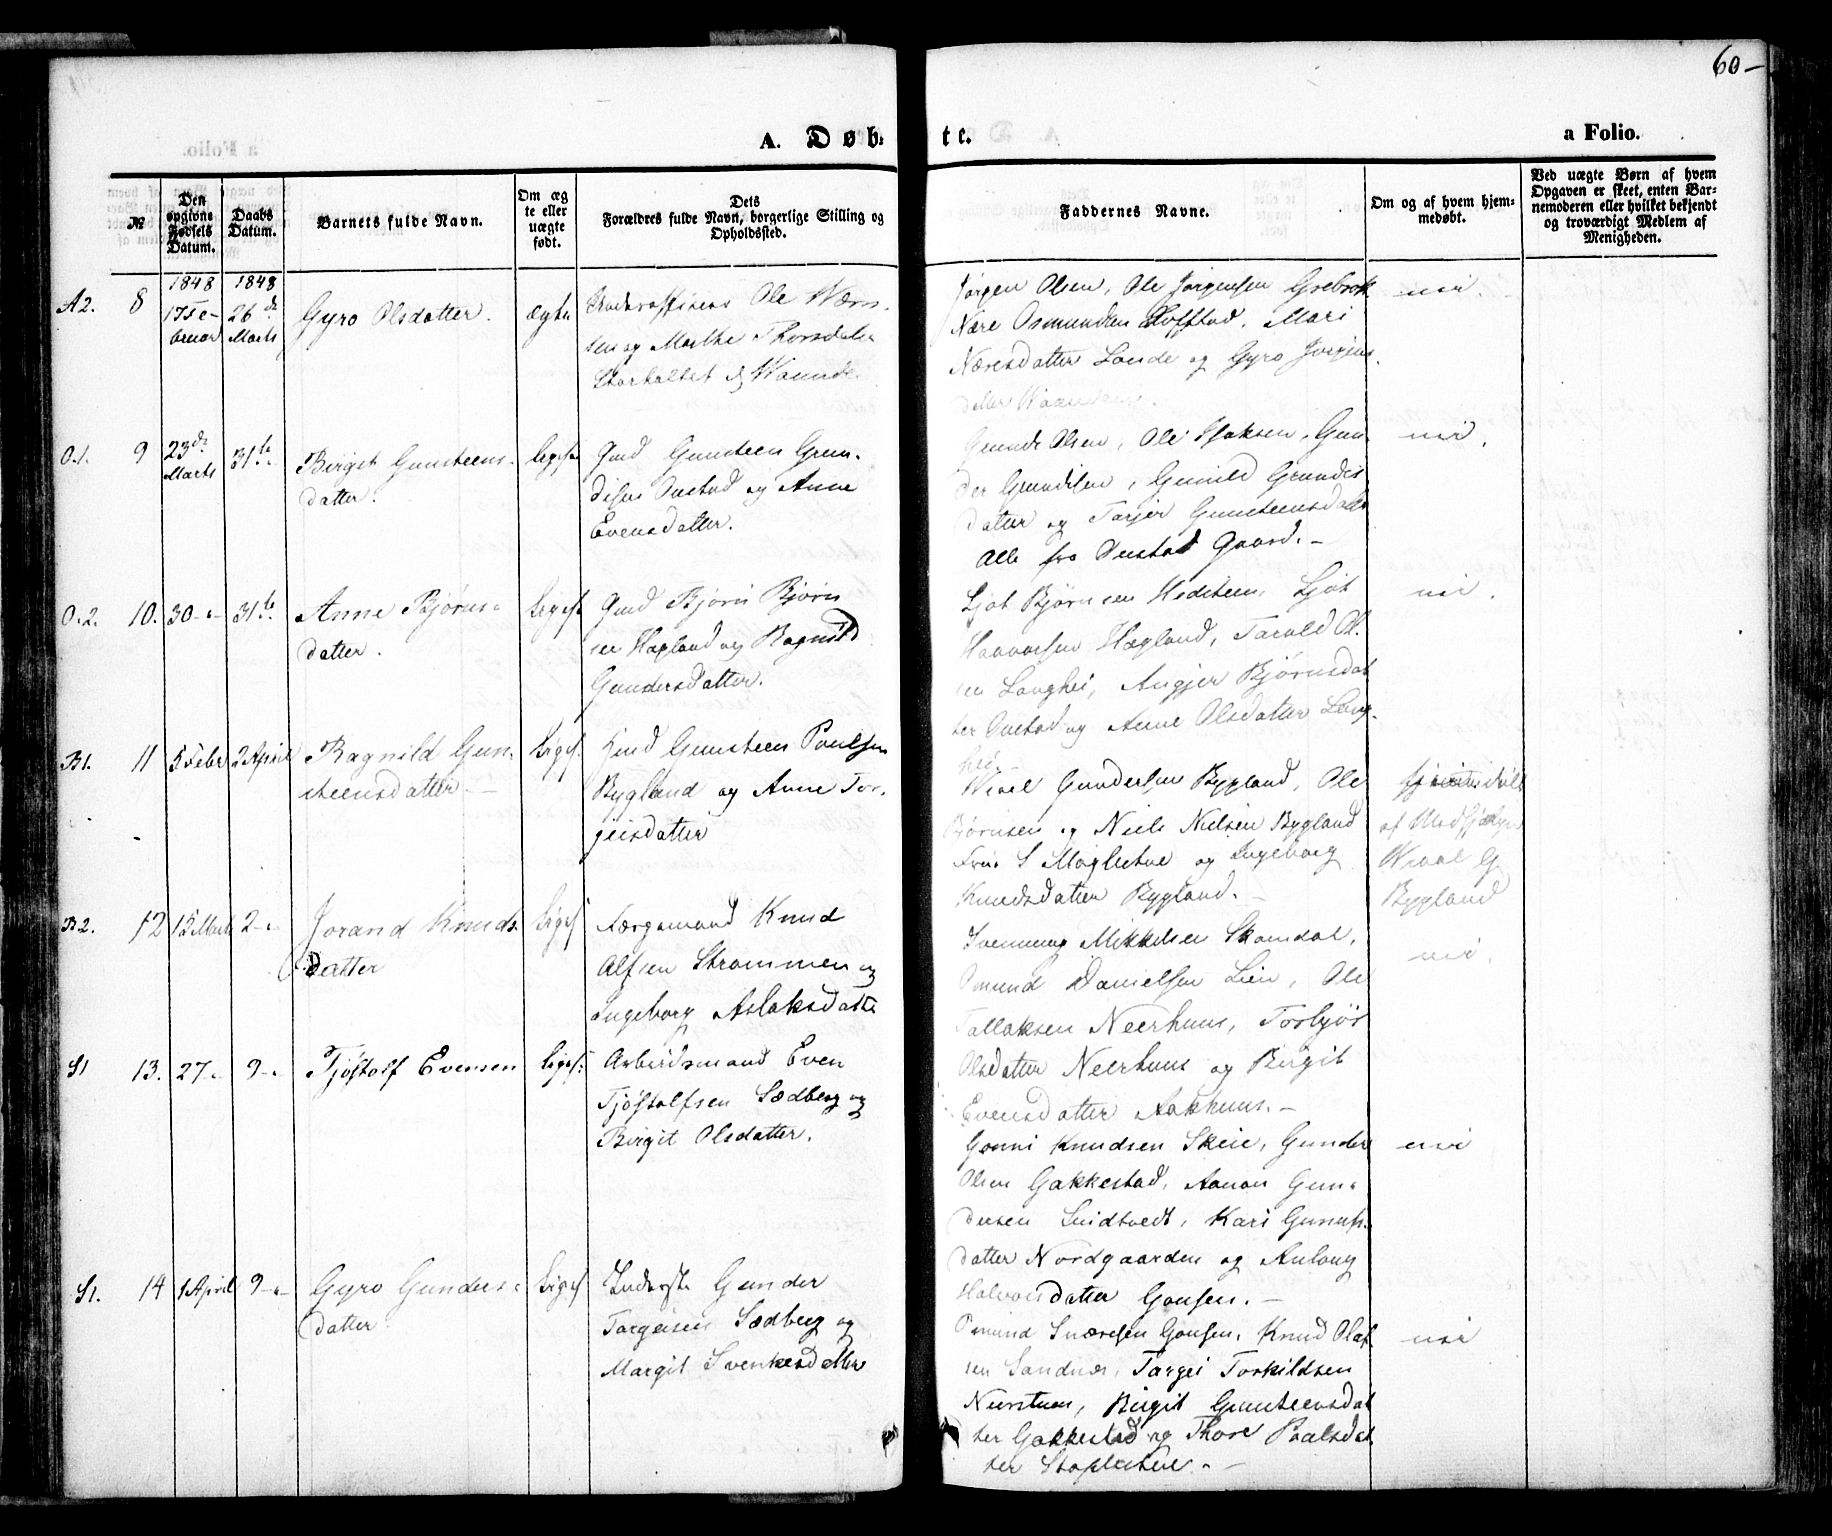 60 –
A. Døb-
te.
a Folio.
№
Den
opgivne
Fødsels
Datum.
Daabs
Datum.
Barnets fulde Navn.
Om æg
te eller
uægte
født.
Dets
Forældres fulde Navn, borgerlige Stilling og
Opholdssted.
Faddernes Navne.
Om og af hvem hjem-
medøbt.
Ved uægte Børn af hvem
Opgaven er skeet, enten Bar-
nemoderen eller hvilket bekjendt
og troværdigt Medlem af
Menigheden.
A2.
8
1848
17 Fe-
bruar
1848
26 de
Marts
Gyro Olsdatter.
ægte
Underofficeer Ole Næri-
sen og Marthe
Jørgen Olsen, Ole Jørgensen
Nære Osmundsen Hofstad, Mari
Næresdatter Lande og Gyro Jørgens
datter
nei.
O.1.
9
23 de
Marts
31 te
Birgit Gunsteens-
datter.
ligesaa
Gmd Gunsteen Grun-
desen Austad og Anne
Evensdatter.
Grunde Olsen, Ole Isaksen, Gun-
der Grundesen, Gunild Grundes
datter og Tarjer Gunsteensdatter
Alle fra Austad Gaard. –
nei.
O.2.
10.
30 –"–
31 te
Anne Bjørns-
datter.
Ligesaa
Gmd Bjørn Bjørn
sen Hægland og Ragnild
Gundersdatter.
Ljot Bjørnsen Hodsteen, Ljot
Haavorsen Hægland, Tarald Ol-
sen Langhei, Angjer Bjørnsdat
ter Austad og Anne Olsdatter Lang-
hei –
nei.
B1.
11
5 Febr
2 April
Ragnild Gun-
steensdatter –
Liges.
Gmd Gunsteen Poulsen
Bygland og Anne Tor-
geisdatter
Gundersen Bygland, Ole
Bjørnsen og Niels Nielsen Bygland
Frue S Møglestue og Ingeborg
Knudsdatter Bygland. –
af Medhjælper
G.
Bygland
B2.
12
15 Marts
2 –"–
Jorand Knuds-
datter
Liges
Færgemand Knud
Alfsen Strømmen og
Ingeborg Aslaksdatter
Svennung Mikkelsen Skomedal,
Osmund Danielsen Lien, Ole
Tallaksen Neerhuus, Torbjør
Olsdatter Neerhuus og Birgit
Evensdatter Aakhuus. –
nei.
S1
13.
27 –"
9 –"
Tjøstolf Evensen
Liges.
Arbeidsmand Even
Tjøstolfsen Sædberg og
Birgit Olsdatter.
Gonni Knudsen Skeie, Gunder
Olsen Gakkestad, Aanon Gun-
dersen Suidtvedt, Kari Gunulfs-
datter Nordgaarden og Anlaug
Halvorsdatter Gousen. –
nei
S1.
14
1 April
9 –"–
Gyro Gunders-
datter
Liges
Inderste Gunder
Targeisen Sædberg og
Margit Svenkesdatter
Osmund Snæresen Gousen, Knud Olaf-
sen Sandnæs, Targei Torkildsen
Neerstuen, Birgit Gunsteensdat
ter Gakkestad og Thore Paalsdat
ter –
nei